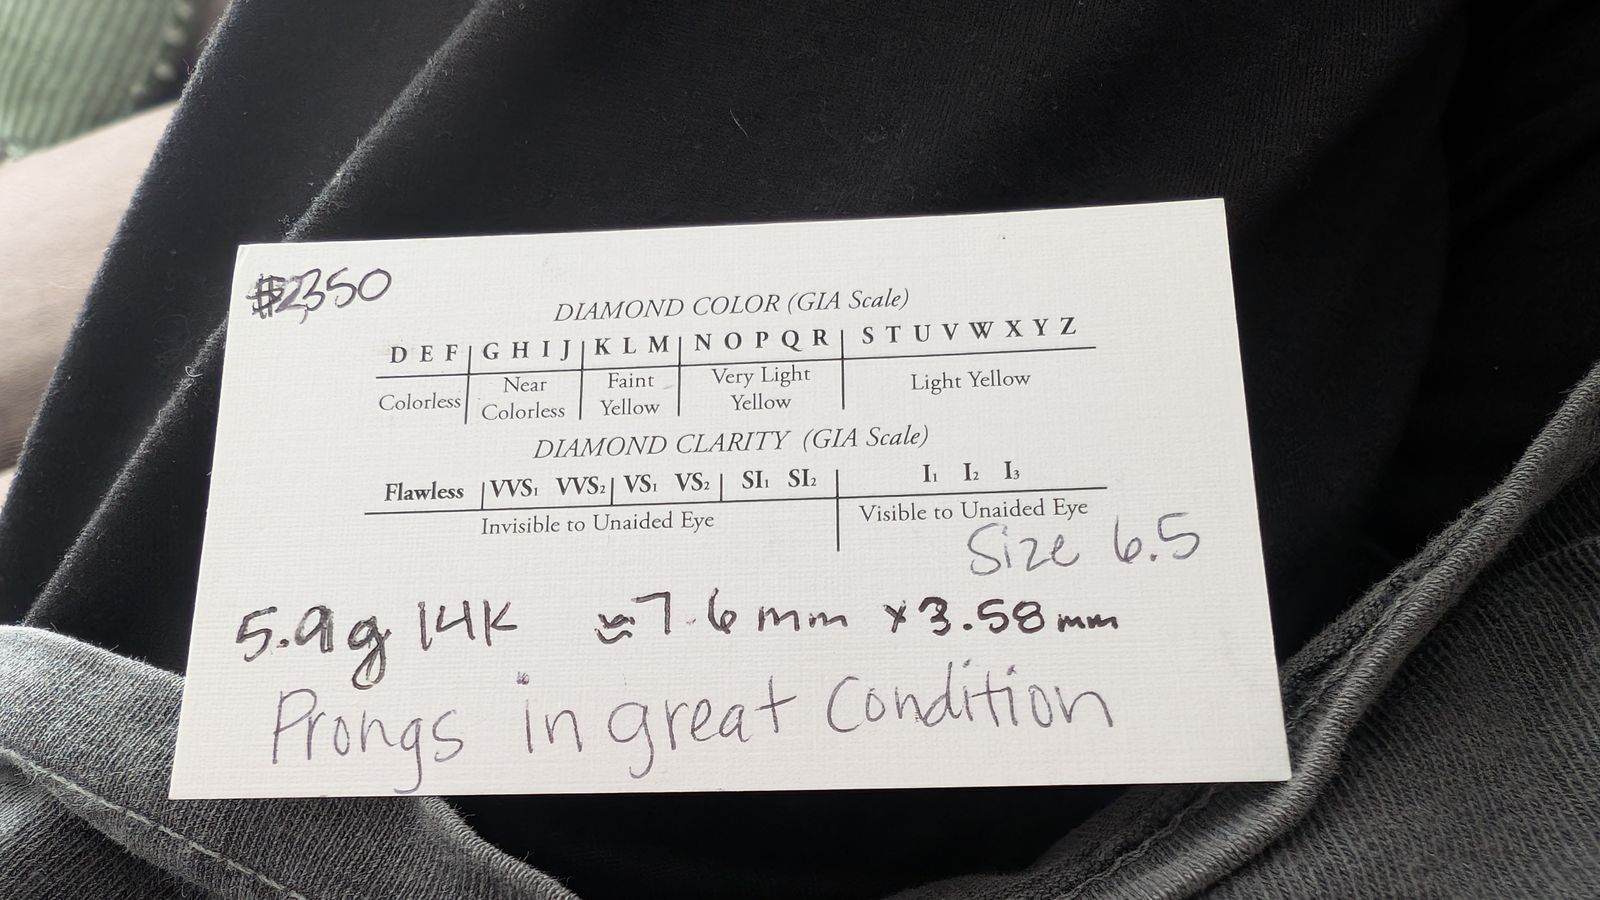 $2,350
DIAMOND COLOR (GIA Scale)
D E F | G H I J | K L M | N O P Q R | S T U V W X Y Z
Colorless | Near Colorless | Faint Yellow | Very Light Yellow | Light Yellow
DIAMOND CLARITY (GIA Scale)
Flawless | VVS1 VVS2 | VS1 VS2 | SI1 SI2 | I1 I2 I3
Invisible to Unaided Eye | Visible to Unaided Eye
Size 6.5
5.9g 14K ≈7.6mm x 3.58mm
Prongs in great condition